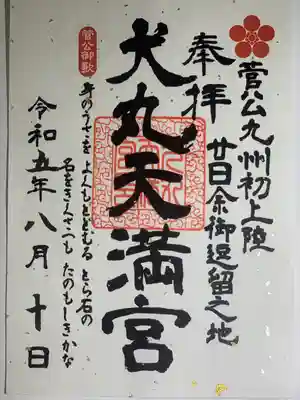 菅公九州初上陸
廿日余御逗留之地
奉拝
犬丸天満宮
菅公御歌
身のうさを よくもとどむる とら石の
名をきくさへも たのもしきかな
令和五年八月十日